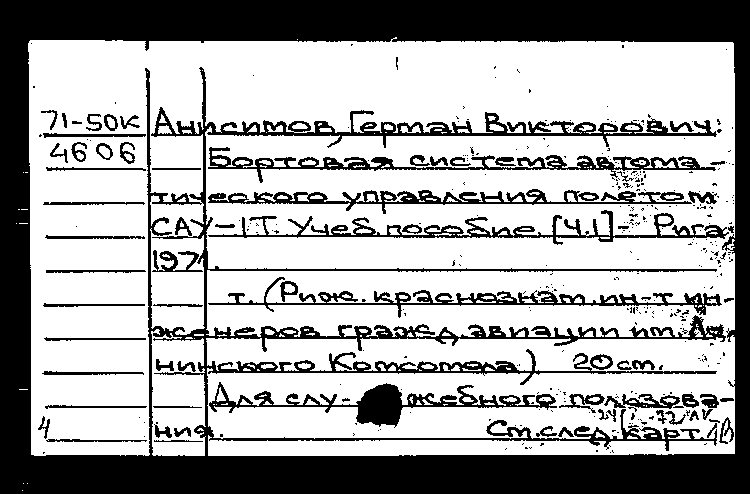 71-50к Анисимов, Герман Викторович.
4606 Бортовая система автома-
тического управления полетом
САУ-1Т. Учеб. пособие. [Ч.1] - Рига
1971.
т. (Риж. краснознам. ин-т ин-
женеров гражд. авиации им. Ле-
нинского Комсомола). 20 см.
Для слу- жебного пользова-
4 ния. См. след. карт.